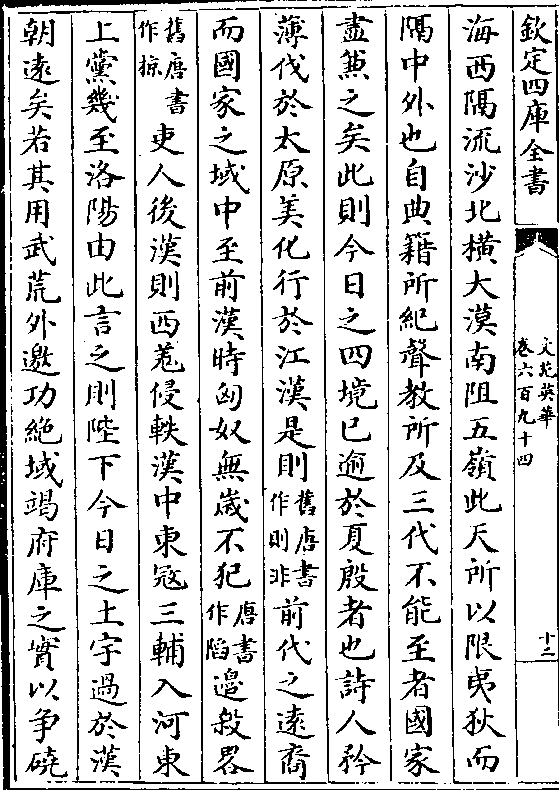 欽定四庫全書
文苑英華
卷六百九十四
十二
海西隔流沙北橫大漠南阻五嶺此天所以限夷狄而
隔中外也自典籍所紀聲教所及三代不能至者國家
盡兼之矣此則今日之四境已逾於夏殷者也詩人矜
薄伐於太原美化行於江漢是則舊唐書作則非前代之遠裔
而國家之域中至前漢時匈奴無歲不犯唐書作陷邉殺畧
舊唐書作掠吏人後漢則西羌侵軼漢中東㓂三輔入河東
上黨幾至洛陽由此言之則陛下今日之土宇過於漢
朝遠矣若其用武荒外邀功絶域竭府庫之實以争磽